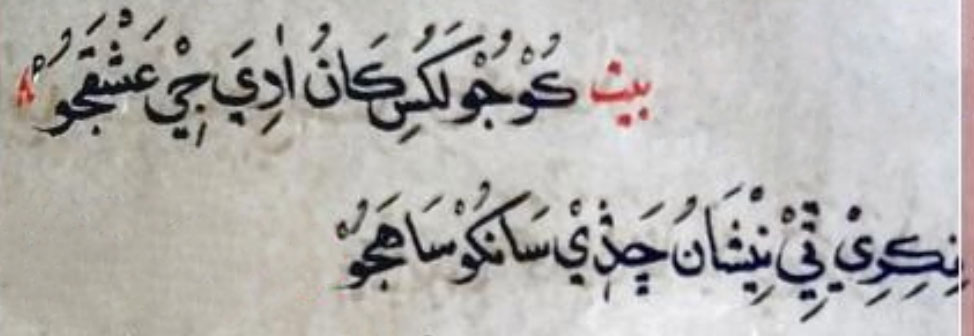 بيت كُوْجُوْ لَكَسِ كَانُ اٰدِيَ جِيْ عَشْقَجُوْ
نِكِرِيْ تِيْ نِيْشَانُ جَڎِيْ سَانكُوْ سَاهَجُوْ